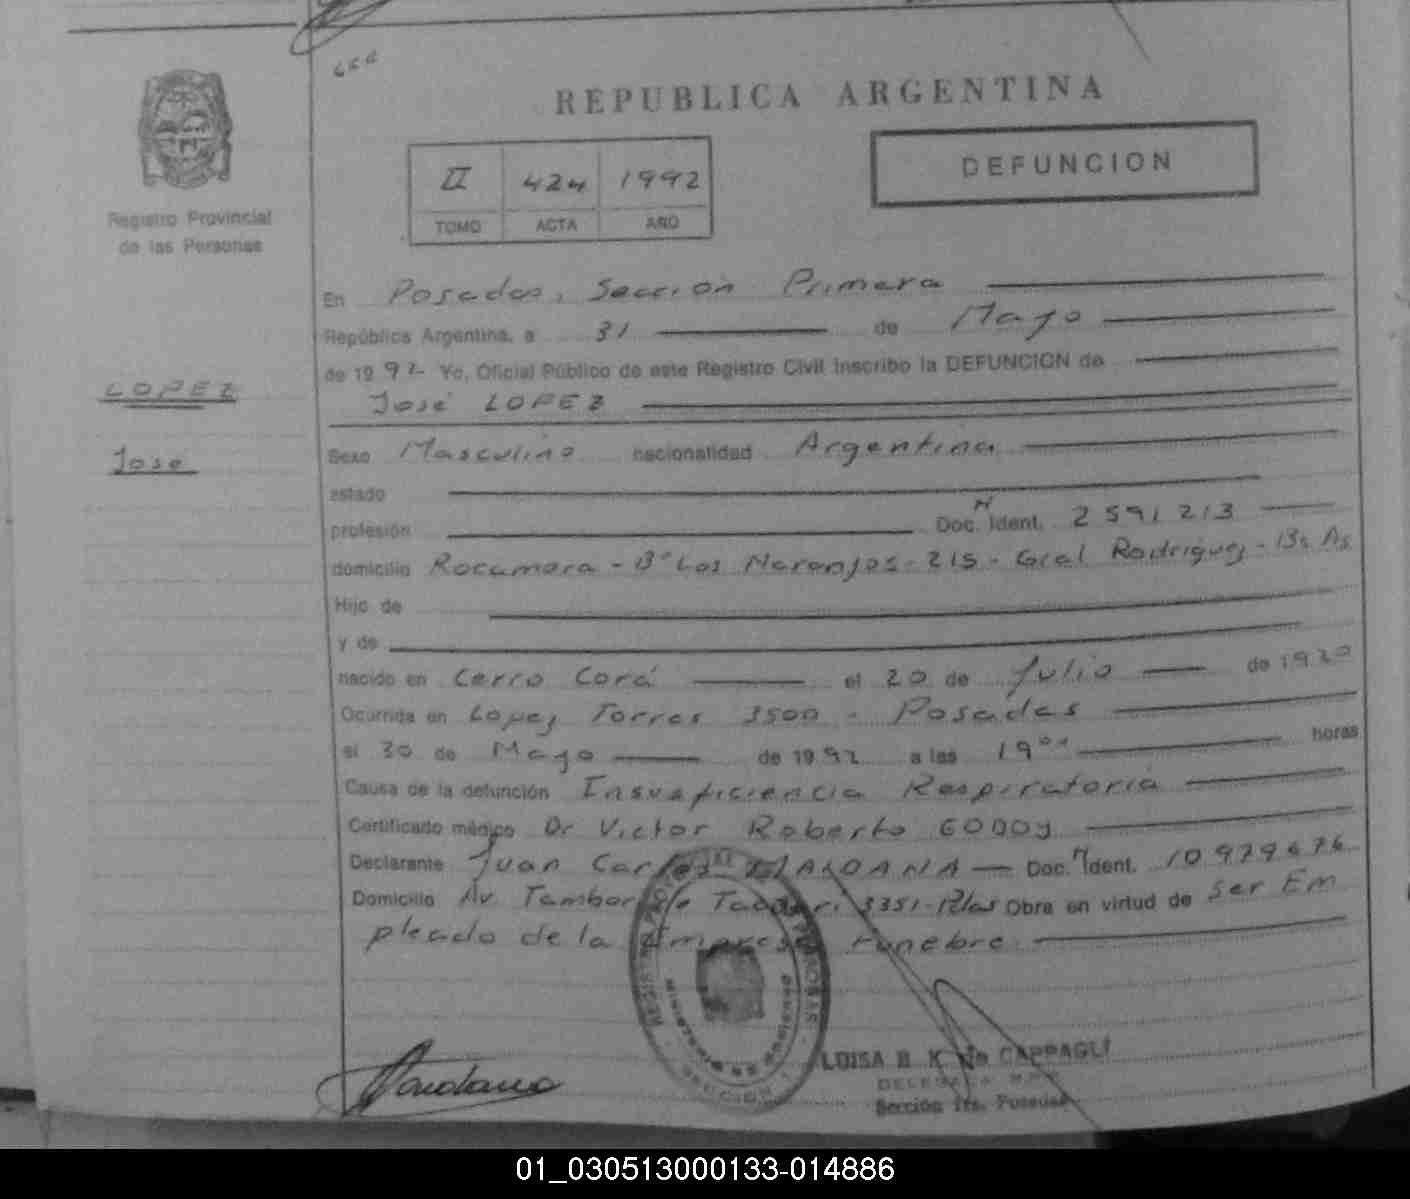 REPUBLICA ARGENTINA
DEFUNCION
II 424 1992
TOMO ACTA AÑO
Registro Provincial
de las Personas
LOPEZ
José
En Posadas, Sección Primera
República Argentina, a 31 de Mayo
de 1992 Yo, Oficial Público de este Registro Civil inscribo la DEFUNCION de
José LOPEZ
Sexo Masculino nacionalidad Argentina
estado
profesión Doc. Ident. 2591213
domicilio Rocamora - Bº Los Naranjos - 215 - Gral Rodriguez - Bs As
Hijo de
y de
nacido en Cerro Corá el 20 de Julio de 1920
Ocurrida en Lopez Torres 3500 - Posadas
el 30 de Mayo de 1992 a las 19 horas
Causa de la defunción Insuficiencia Respiratoria
Certificado médico Dr Victor Roberto GODOY
Declarante Juan Carlos MAIDANA Doc. Ident. 10979676
Domicilio Av. Tambor de Tacuari 3351 - Pdas Obra en virtud de Ser Em
pleado de la Empresa Funebre.
LUISA B. K. de CAPPAGLI
DELEGADA R.P.P.
Sección 1ra. Posadas
01_030513000133-014886